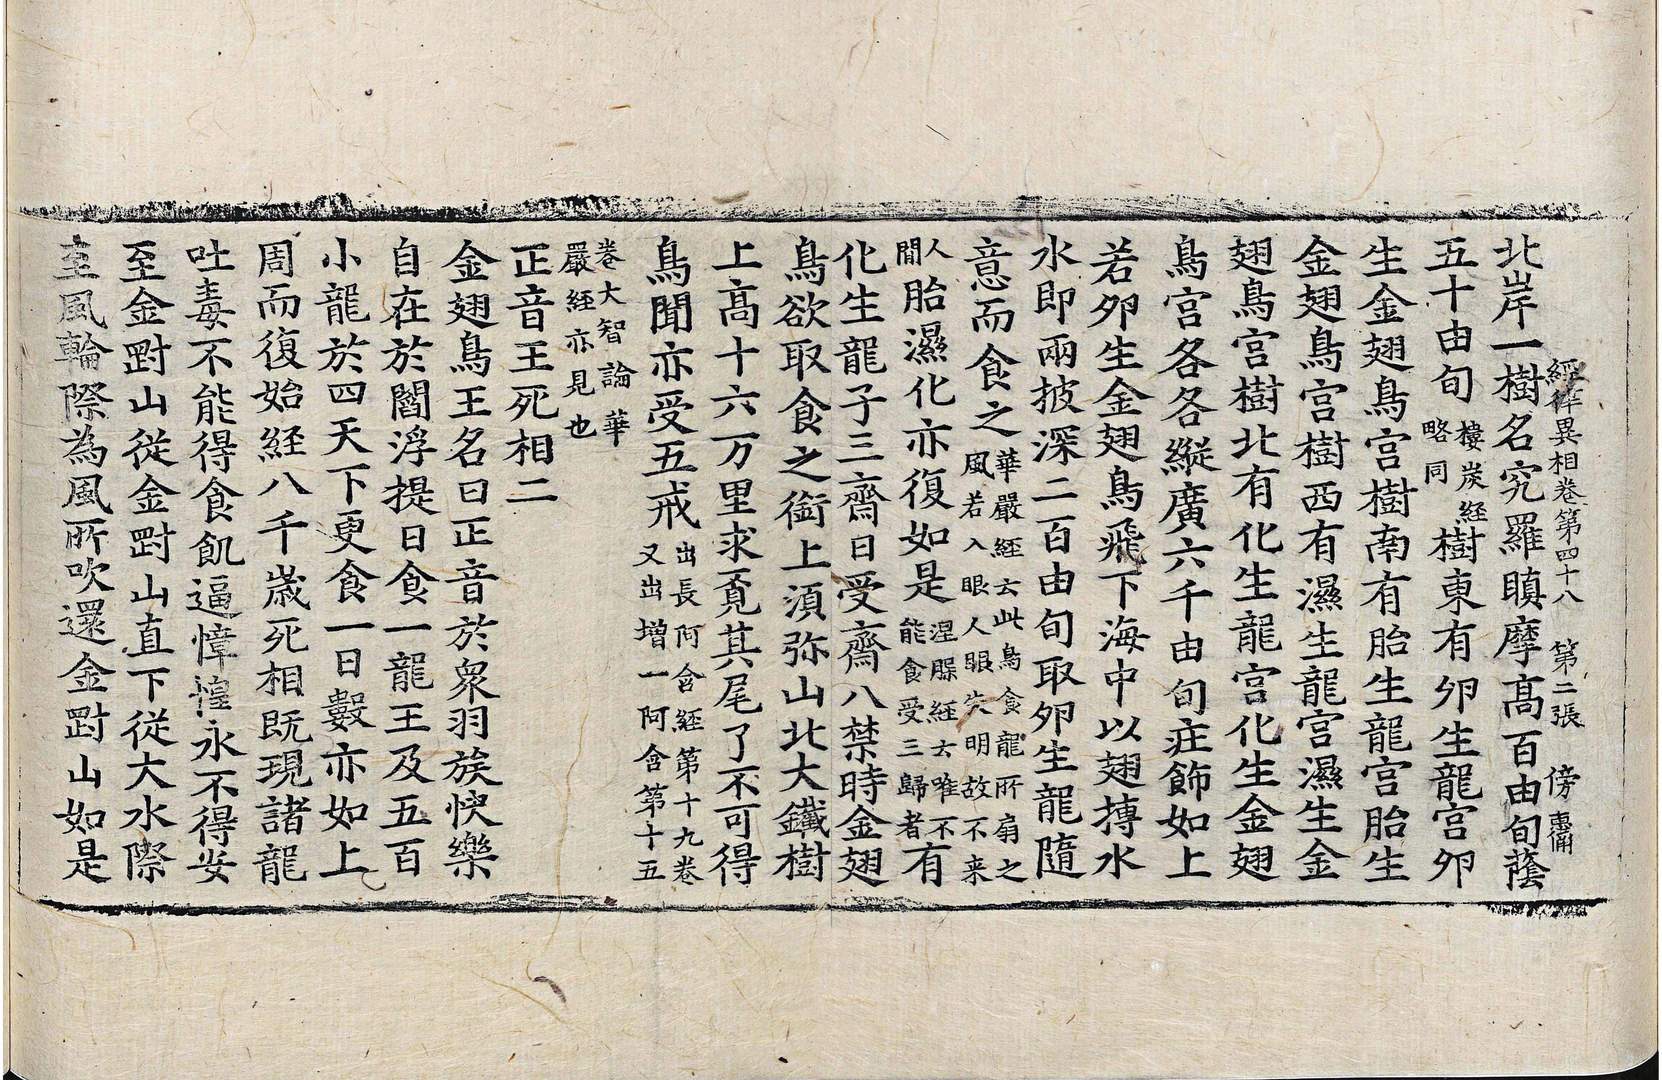 經律異相卷第四十八 第二張 傍
北岸一樹名究羅瞋摩高百由旬蔭
五十由旬樓炭経略同樹東有卵生龍宫卵
生金翅鳥宫樹南有胎生龍宫胎生
金翅鳥宫樹西有濕生龍宫濕生金
翅鳥宫樹北有化生龍宫化生金翅
鳥宫各各縱廣六千由旬庄飾如上
若卵生金翅鳥飛下海中以翅搏水
水即兩披深二百由旬取卵生龍隨
意而食之華嚴經云此鳥食龍所扇之風若入眼人眼失明故不来
人間胎濕化亦復如是涅槃經云唯不能食受三歸者有
化生龍子三齋日受齋八禁時金翅
鳥欲取食之銜上須弥山北大鐵樹
上高十六万里求覓其尾了不可得
鳥聞亦受五戒出長阿含経第十九卷又出増一阿含第十五
卷大智論華嚴経亦見也
正音王死相二
金翅鳥王名曰正音於衆羽族快樂
自在於閻浮提日食一龍王及五百
小龍於四天下更食一日數亦如上
周而復始経八千歳死相既現諸龍
吐毒不能得食飢逼慞惶永不得安
至金剛山従金剛山直下従大水際
至風輪際為風所吹還金剛山如是